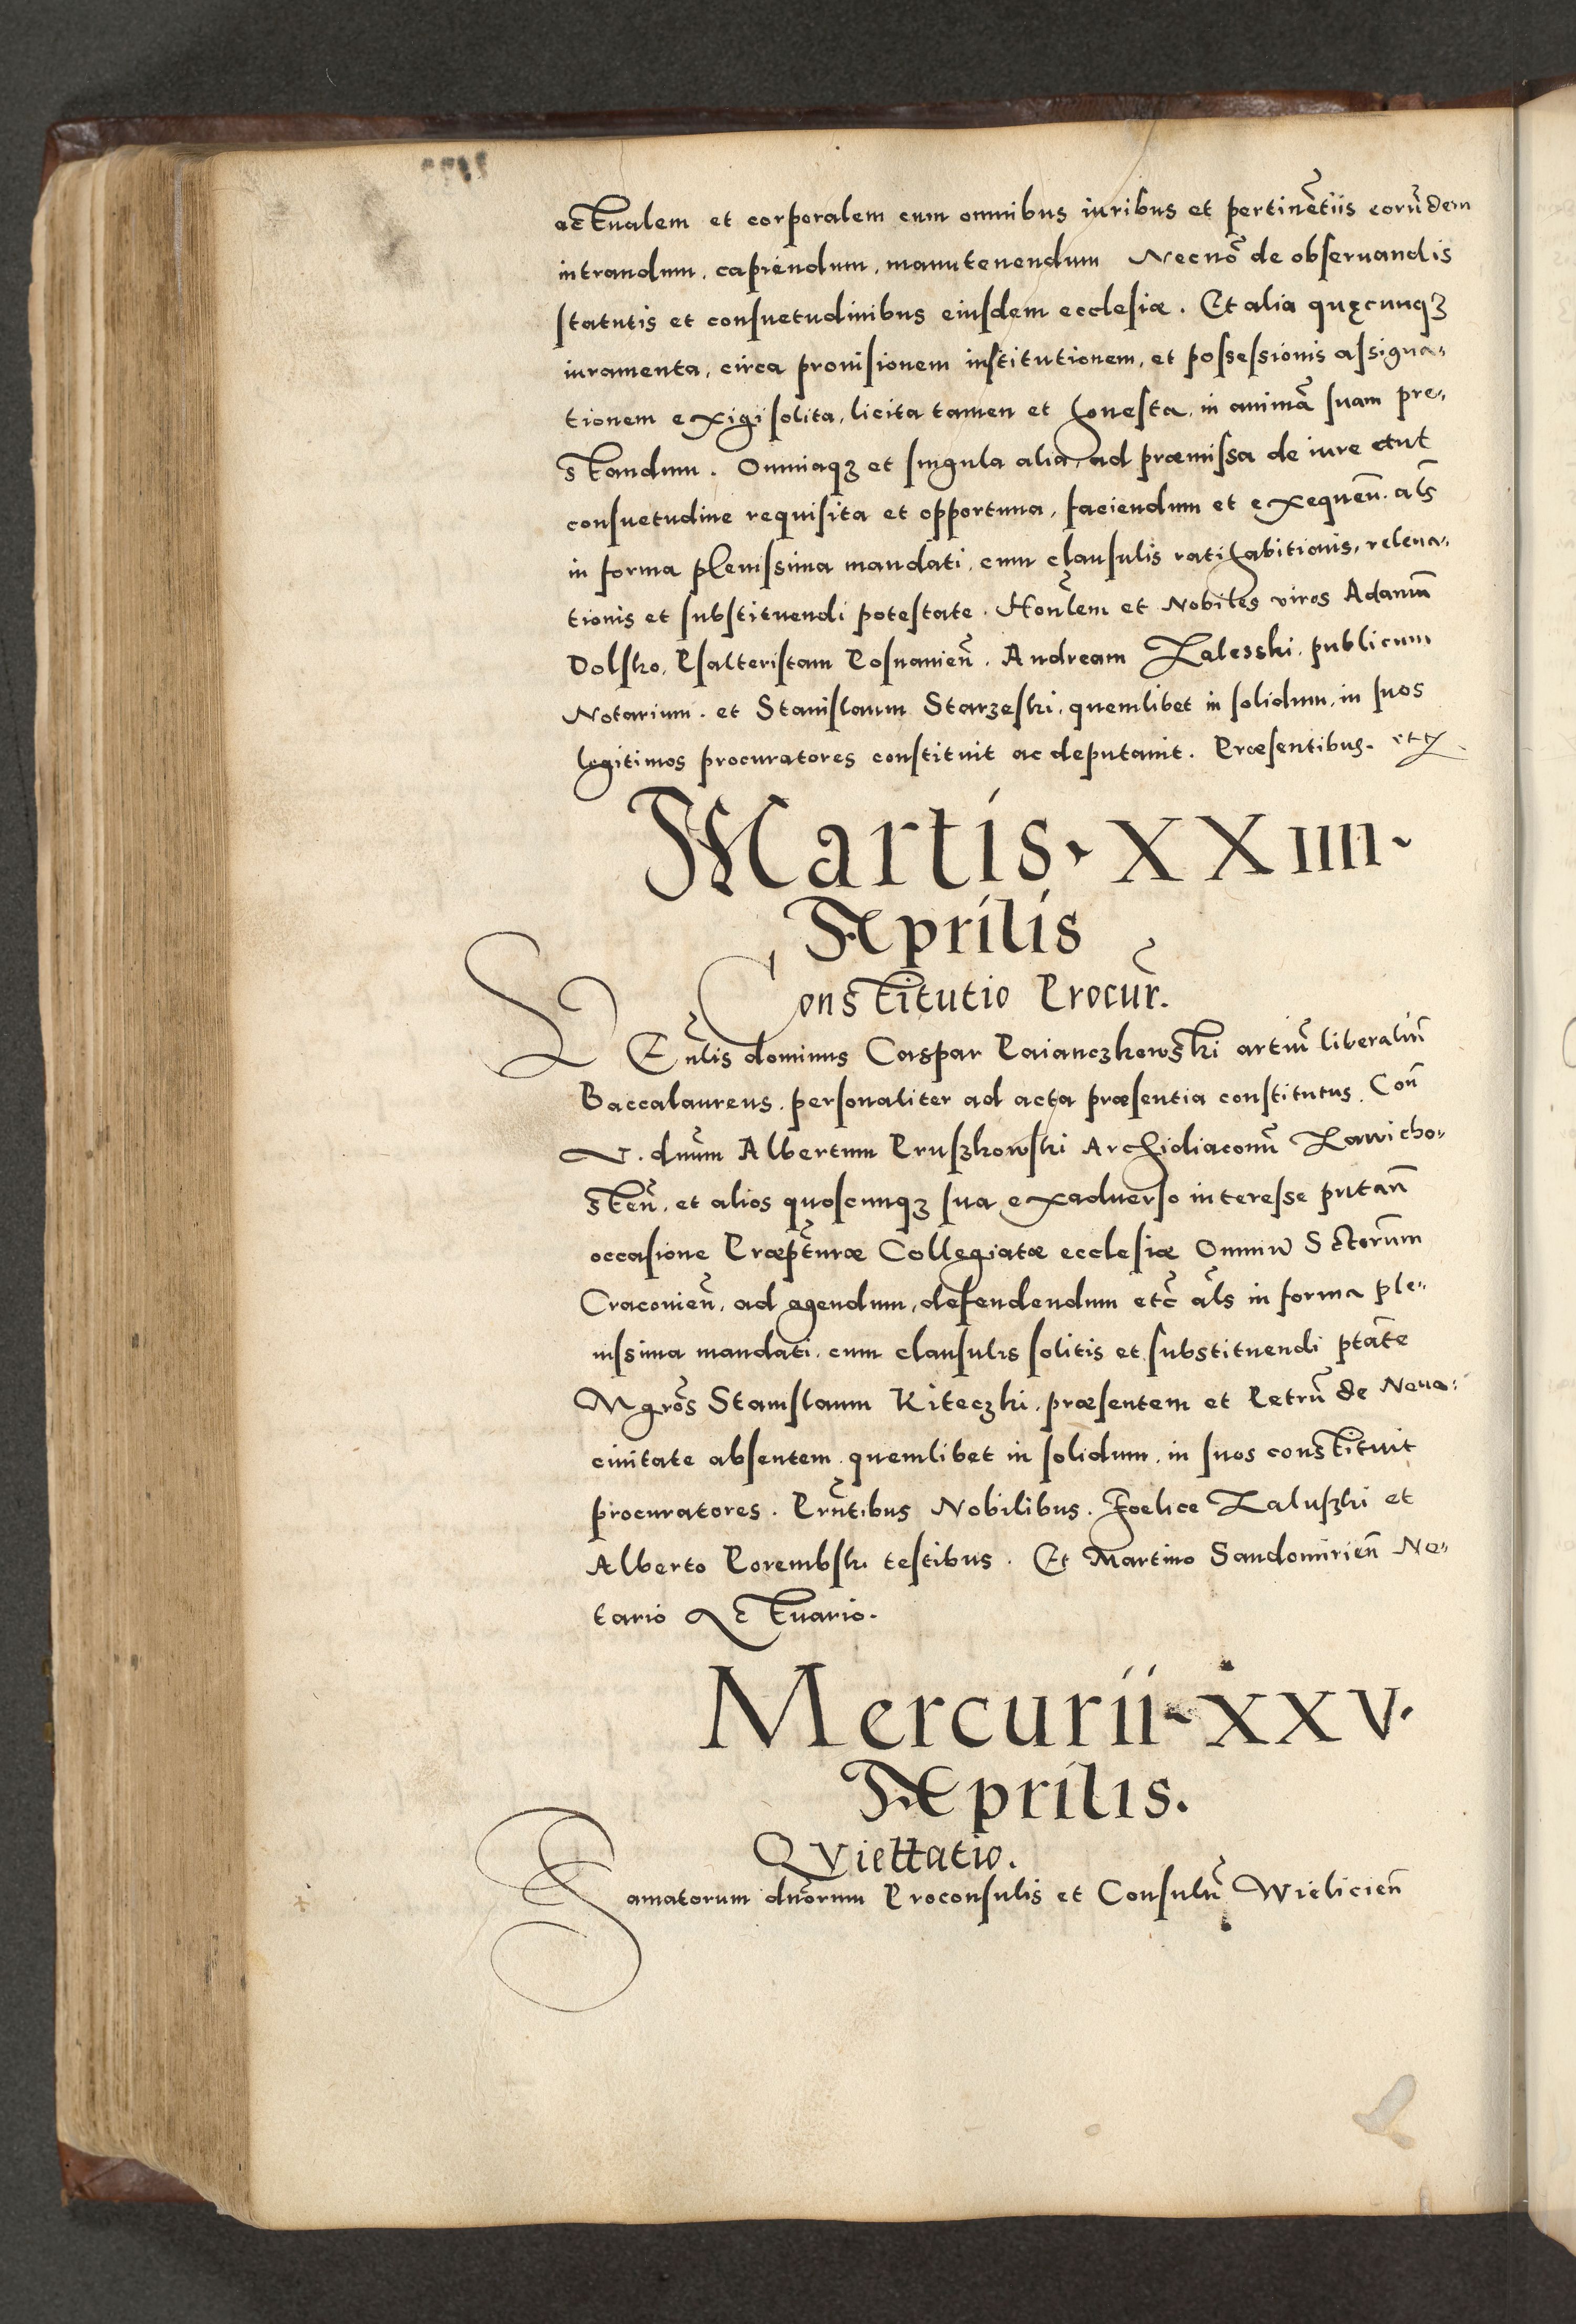 actualem et corporalem cum omnibus iuribus et pertinẽtiis eorũdem
intrandum, capiendum, manutenendum Necnõ de obseruandis
statutis et consuetudinibus eiusdem ecclesiæ. Et alia quęcunqꝫ
iuramenta, circa prouisionem institutionem, et possessionis assigna-
tionem exigi solita, licita tamen et honesta, in animã suam pre-
standum. Omniaqꝫ et singula alia, ad præmissa de iure et
consuetudine requisita et opportuna, faciendum et exequeñ. als̃
in forma plenissima mandati, cum clausulis ratihabitionis, releua-
tionis et substituendi potestate. Hoñlem et Nobiles viros Adamũ
Dolsko, Psalteristam Posnanieñ. Andream Zalesski, publicum
Notarium. et Stanislaum Starzeski, quemlibet in solidum, in suos
legitimos procuratores constituit ac deputauit. Præsentibus. etc
Martis. XXIIII.
Aprilis
Constitutio Procur̃.
VEñlis dominus Caspar Paianczkowski artiũ liberaliũ
Baccalaureus, personaliter ad acta præsentia constitutus. Coñ
V. dñum Albertum Pruszkowski Archidiaconũ Zawicho-
steñ. et alios quoscunqꝫ sua exaduerso interesse putañ
occasione Præp̃turæ Collegiatæ ecclesiæ Omniũ Sctorũm
Cracovieñ, ad agendum, defendendum etc̃ als̃ in forma ple-
nissima mandati, cum clausulis solitis et substituendi ptãte
Mgrõs Stanislaum Kiteczki, præsentem et Petrũ de Noua-
ciuitate absentem, quemlibet in solidum, in suos constituit
procuratores. Prñtibus Nobilibus. Foelice Zaluszki et
Alberto Porembski testibus. Et Martino Sandomirieñ No-
tario Actuario.
Mercurii XXV.
Aprilis.
QViettatio.
Famatorum dñorum Proconsulis et Consulũ Wielicieñ